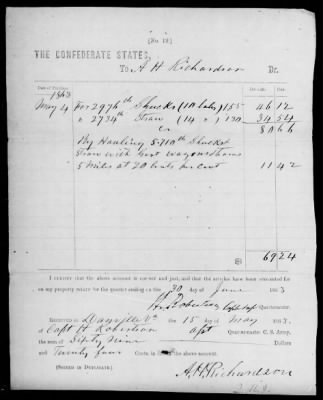 [No. 12]
THE CONFEDERATE STATES,
To A H Richardson Dr.
Date of Purchase.
DOLLARS CTS.
1863
May 4 For 2976 lb Shucks (10 bales) 155 46 12
" 2734 lb Straw (14 " ) 130 34 54
Cr 80 66
By Hauling 5710 lb Shucks &
Straw with Govt wagons & teams
5 miles at 20 cents per cwt 11 42
69 24
I certify that the above account is correct and just, and that the articles have been accounted for
on my property return for the quarter ending on the 30 day of June 1863
H Robertson Capt & Quartermaster.
Received at Danville Va the 15 day of May 1863,
of Capt H Robertson Quartermaster C. S. Army,
the sum of Sixty Nine Dollars
and Twenty four Cents, in full of the above account.
(Signed in Duplicate.)
A. H. Richardson